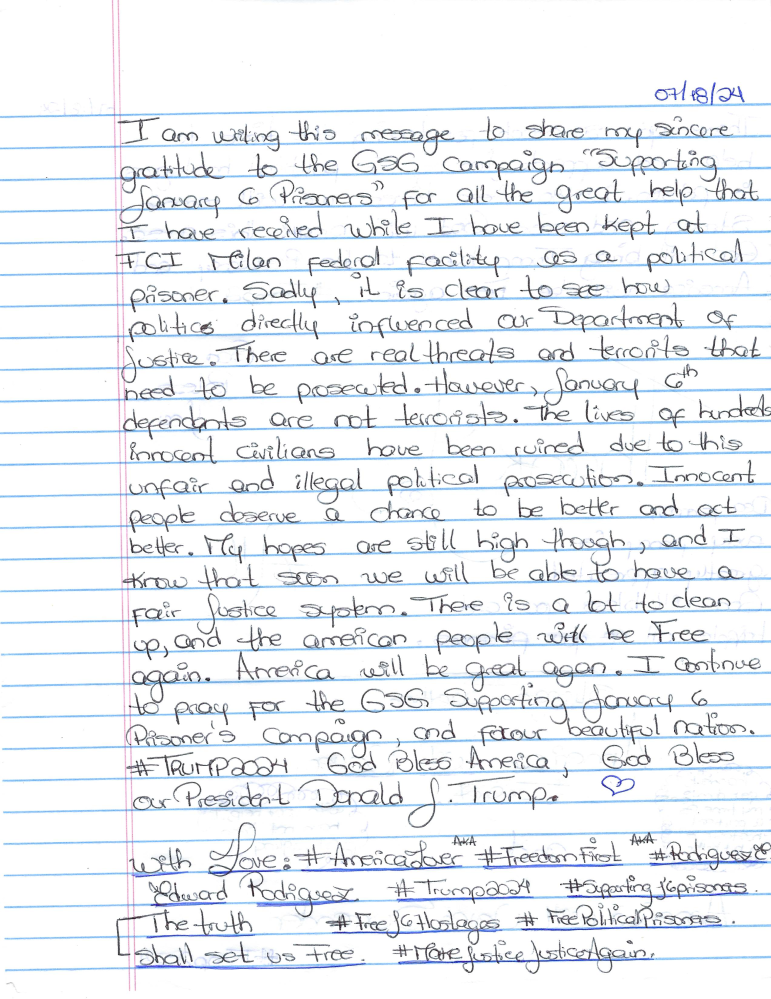 07/18/24
I am writing this message to share my sincere
gratitude to the GSG Campaign "Supporting
January 6 Prisoners" for all the great help that
I have received while I have been kept at
FCI Milan Federal Facility as a political
prisoner. Sadly, it is clear to see how
politics directly influenced our Department of
Justice. There are real threats and terrorits that
need to be prosecuted. However, January 6th
defendants are not terrorists. The lives of hundreds
innocent civilians have been ruined due to this
unfair and illegal political prosecution. Innocent
people deserve a chance to be better and act
better. My hopes are still high though, and I
know that soon we will be able to have a
Fair Justice system. There is a lot to clean
up, and the american people will be Free
again. America will be great again. I continue
to pray for the GSG Supporting January 6
Prisoner's Campaign, and for our beautiful nation.
#TRUMP2024 God Bless America, God Bless
our President Donald J. Trump.
With Love: #AmericaLover AKA #FreedomFirst AKA #RodriguezE
Edward Rodriguez #Trump2024 #SuportingJ6prisoners.
The truth #FreeJ6Hostages #FreePoliticalPrisoners.
Shall set us Free. #MakeJusticeJusticeAgain.